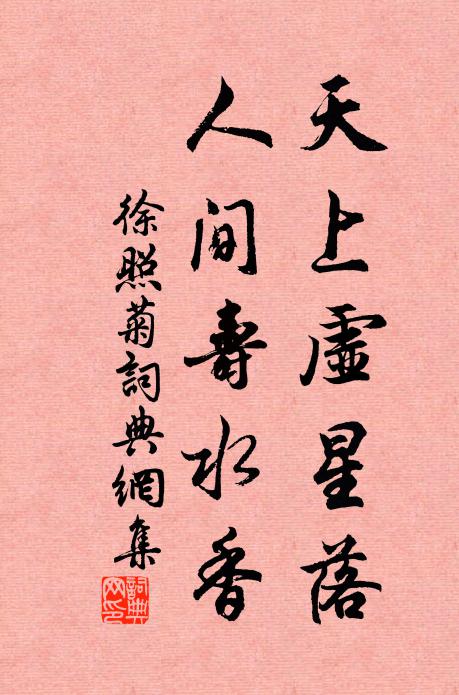 天上虛星落
人間壽水香
徐照菊詞典網集
詞典網印